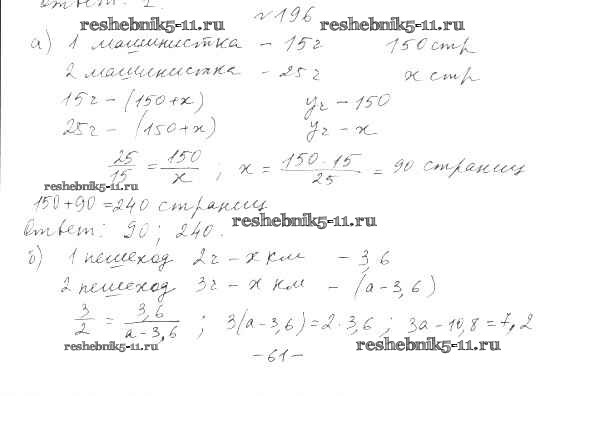 ответ: 2.
№196
reshebnik5-11.ru reshebnik5-11.ru
а) 1 машинистка – 15г 150 стр
2 машинистка – 25г х стр
15г – (150+х) уг – 150
25г – (150+х) уг – х
25/15 = 150/х ; х = 150·15/25 = 90 страниц
reshebnik5-11.ru
150+90=240 страниц
reshebnik5-11.ru
ответ: 90; 240.
б) 1 пешеход 2г – х км – 3,6
2 пешеход 3г – х км – (а – 3,6)
3/2 = 3,6/а–3,6 ; 3(а–3,6)=2·3,6 ; 3а–10,8=7,2
reshebnik5-11.ru reshebnik5-11.ru
–61–